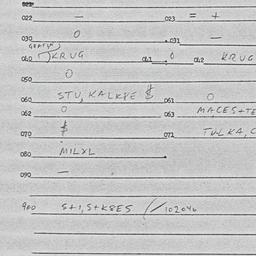 022 — 023 = +
030 0 031 —
040 KRUG 041 0 042 KRUG
050 0
060 STU, KALKYE $ 061 0
062 0 063 MACES+TE
070 $ 071 TULKA, C
080 MILYL
090 —
900 S+1, S+K8ES /102046